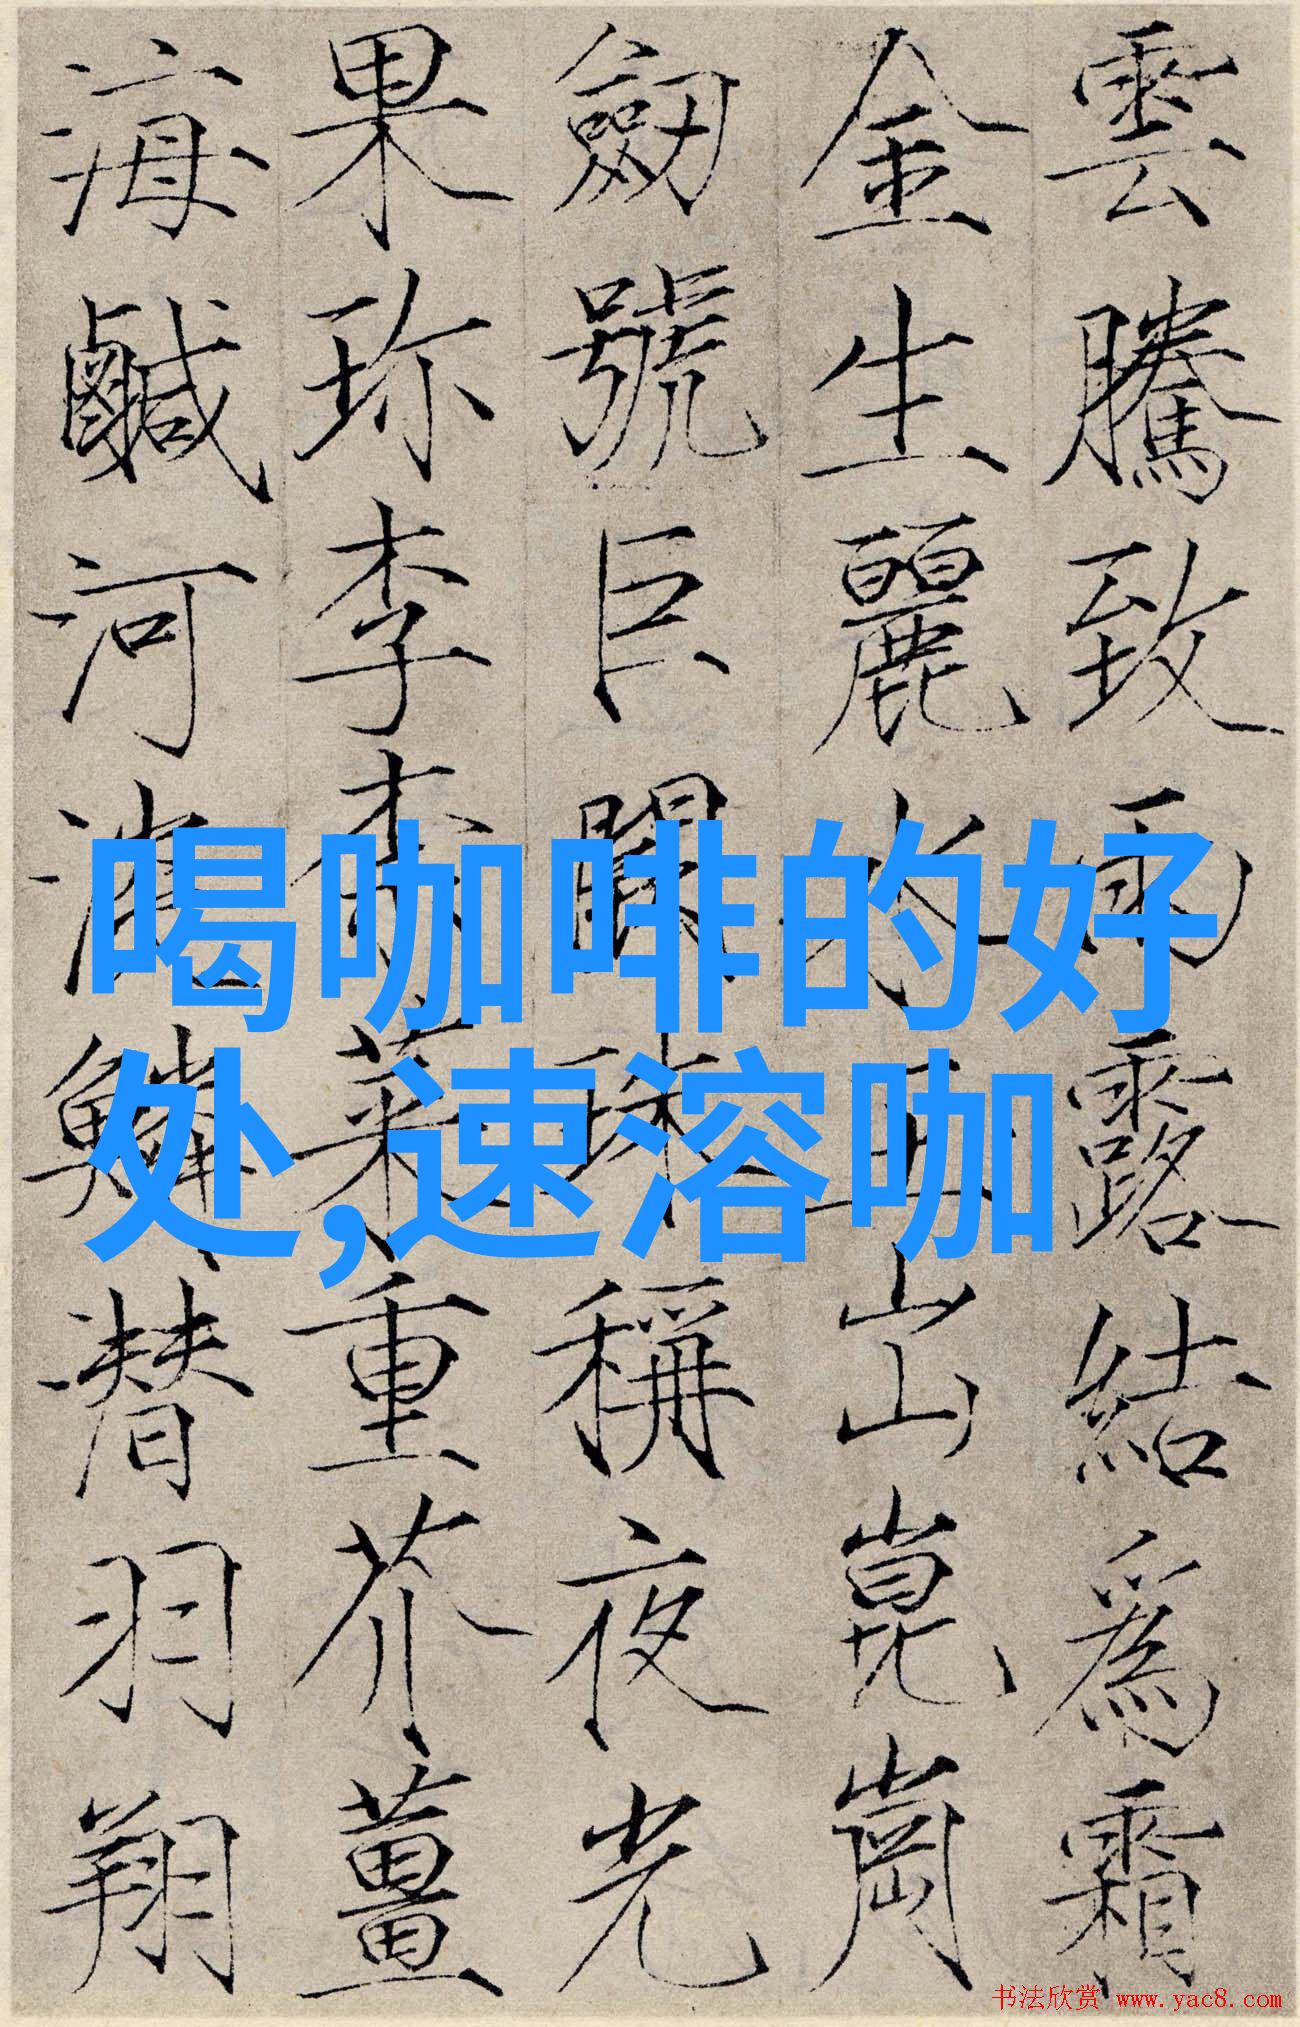 雲騰致雨露結爲霜
金生麗水玉出崑崗
劒號巨闕珠稱夜光
果珎李柰菜重芥薑
海鹹河淡鱗潛羽翔
喝咖啡的好
处,速溶咖
书法欣赏 www.yac8.com